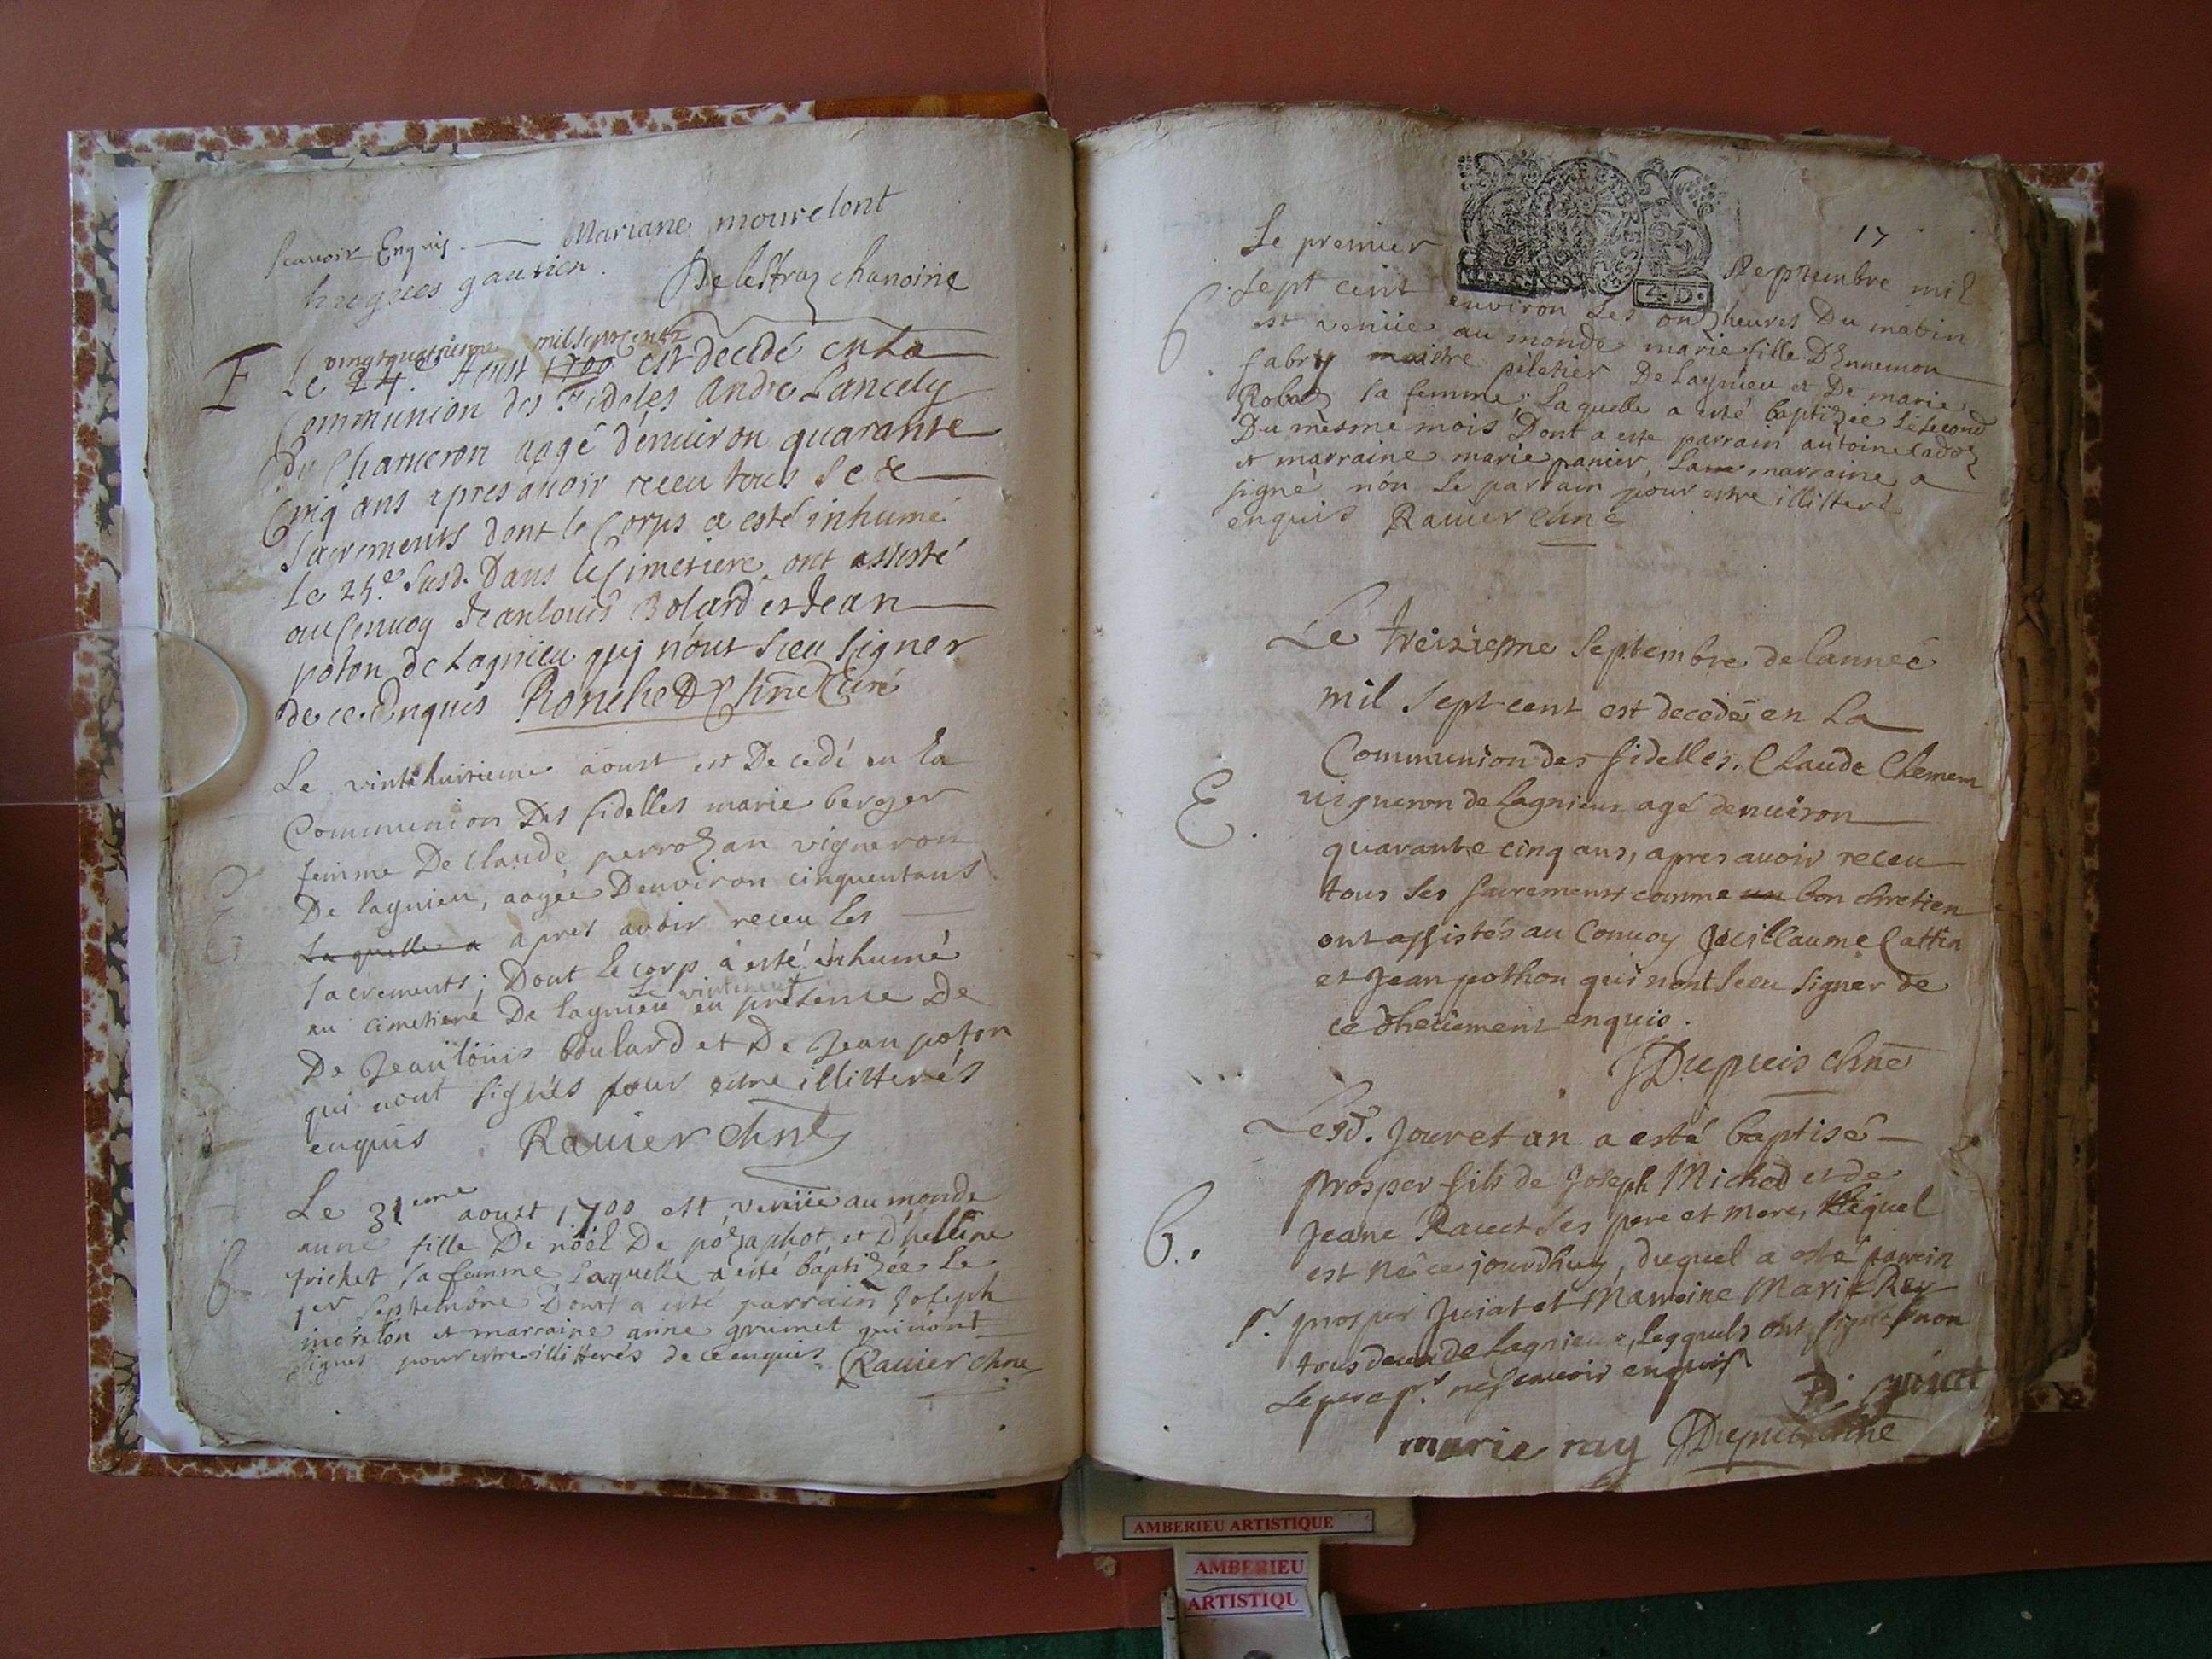 scavoir Enquis. — Mariane mourelont
hugues gautier. Delestraz chanoine
E
vingtquatrieme mil sept centz
Le 24e Aoust 1700 est decedé en La
Communion des Fideles André Lancely
du Charneron aagé d'enuiron quarante
Cinq ans apres auoir receu tous Se &
Sacrements dont le Corps a esté inhumé
Le 25.e Susd. Dans le Cimetiere ont assisté
au Conuoy Jean louis Bolard et Jean
poton de Lagnieu quj n'ont Sceu Signer
de ce. Enquis Ronched Chne Curé
Le vinthuitieme aoust est Decedé en la
Communion Des fidelles marie berger
femme De Claude perrozan vigneron
De lagnieu, aagée Denviron cinquentans
La quelle a apres avoir receu les
sacrements; Dont le corp à esté inhumé
Le vinteneuf
au cimetiere De lagnieu en presence De
De Jean louis boulard et De Jean poton
qui nont signés pour estre illitterés
enquis Rauier chne
Le 31eme aoust 1700 est venüe au monde
anne fille De nöel De pozaphot et D'hellene
B.
trichet sa femme Laquelle a esté baptizée Le
1er Septembre Dont a esté parrain Joseph
morelon et marraine anne grumet qui nont
signes pour estre illitterés de ce enquis Rauier chne
17
Le premier Septembre mil
4.D.
sept cent environ les onz heures Du matin
B.
est venüe au monde marie fille D'Ennemon
fabry maistre peletier De Lagnieu et De marie
Robaz sa femme Laquelle a esté baptizée Le second
Du mesme mois Dont a este parrain antoine cadoz
et marraine marie panier, La marraine a
signé non le parrain pour estre illitteré
enquis Rauier chne
Le treiziesme Septembre de lanneé
mil Sept cent est decedé en La
Communion des fidelles, Claude Chemem
E.
uigneron de Lagnieu agé denuiron
quarante cinq ans, apres auoir receu
tous ses sacrements comme un bon chretien
ont assistés au Conuoy Guillaume Cattin
et Jean pothon qui nont sceu signer de
ce dheüement enquis.
Dupuis chne
Lesd. Jour et an a esté baptisé
prosper fils de Joseph Michod et de
Jeane Rauet ses pere et mere, lequel
B.
est né ce jourdhuy, duquel a esté parrein
Sr. prosper Juiat et Marreine Marie Rey
tous deux de Lagnieu, lesquels ont signés non
le pere pr. ne sauoir enquis
P. juiat
marie ray Dupuis chne
AMBERIEU ARTISTIQUE
AMBERIEU
ARTISTIQU